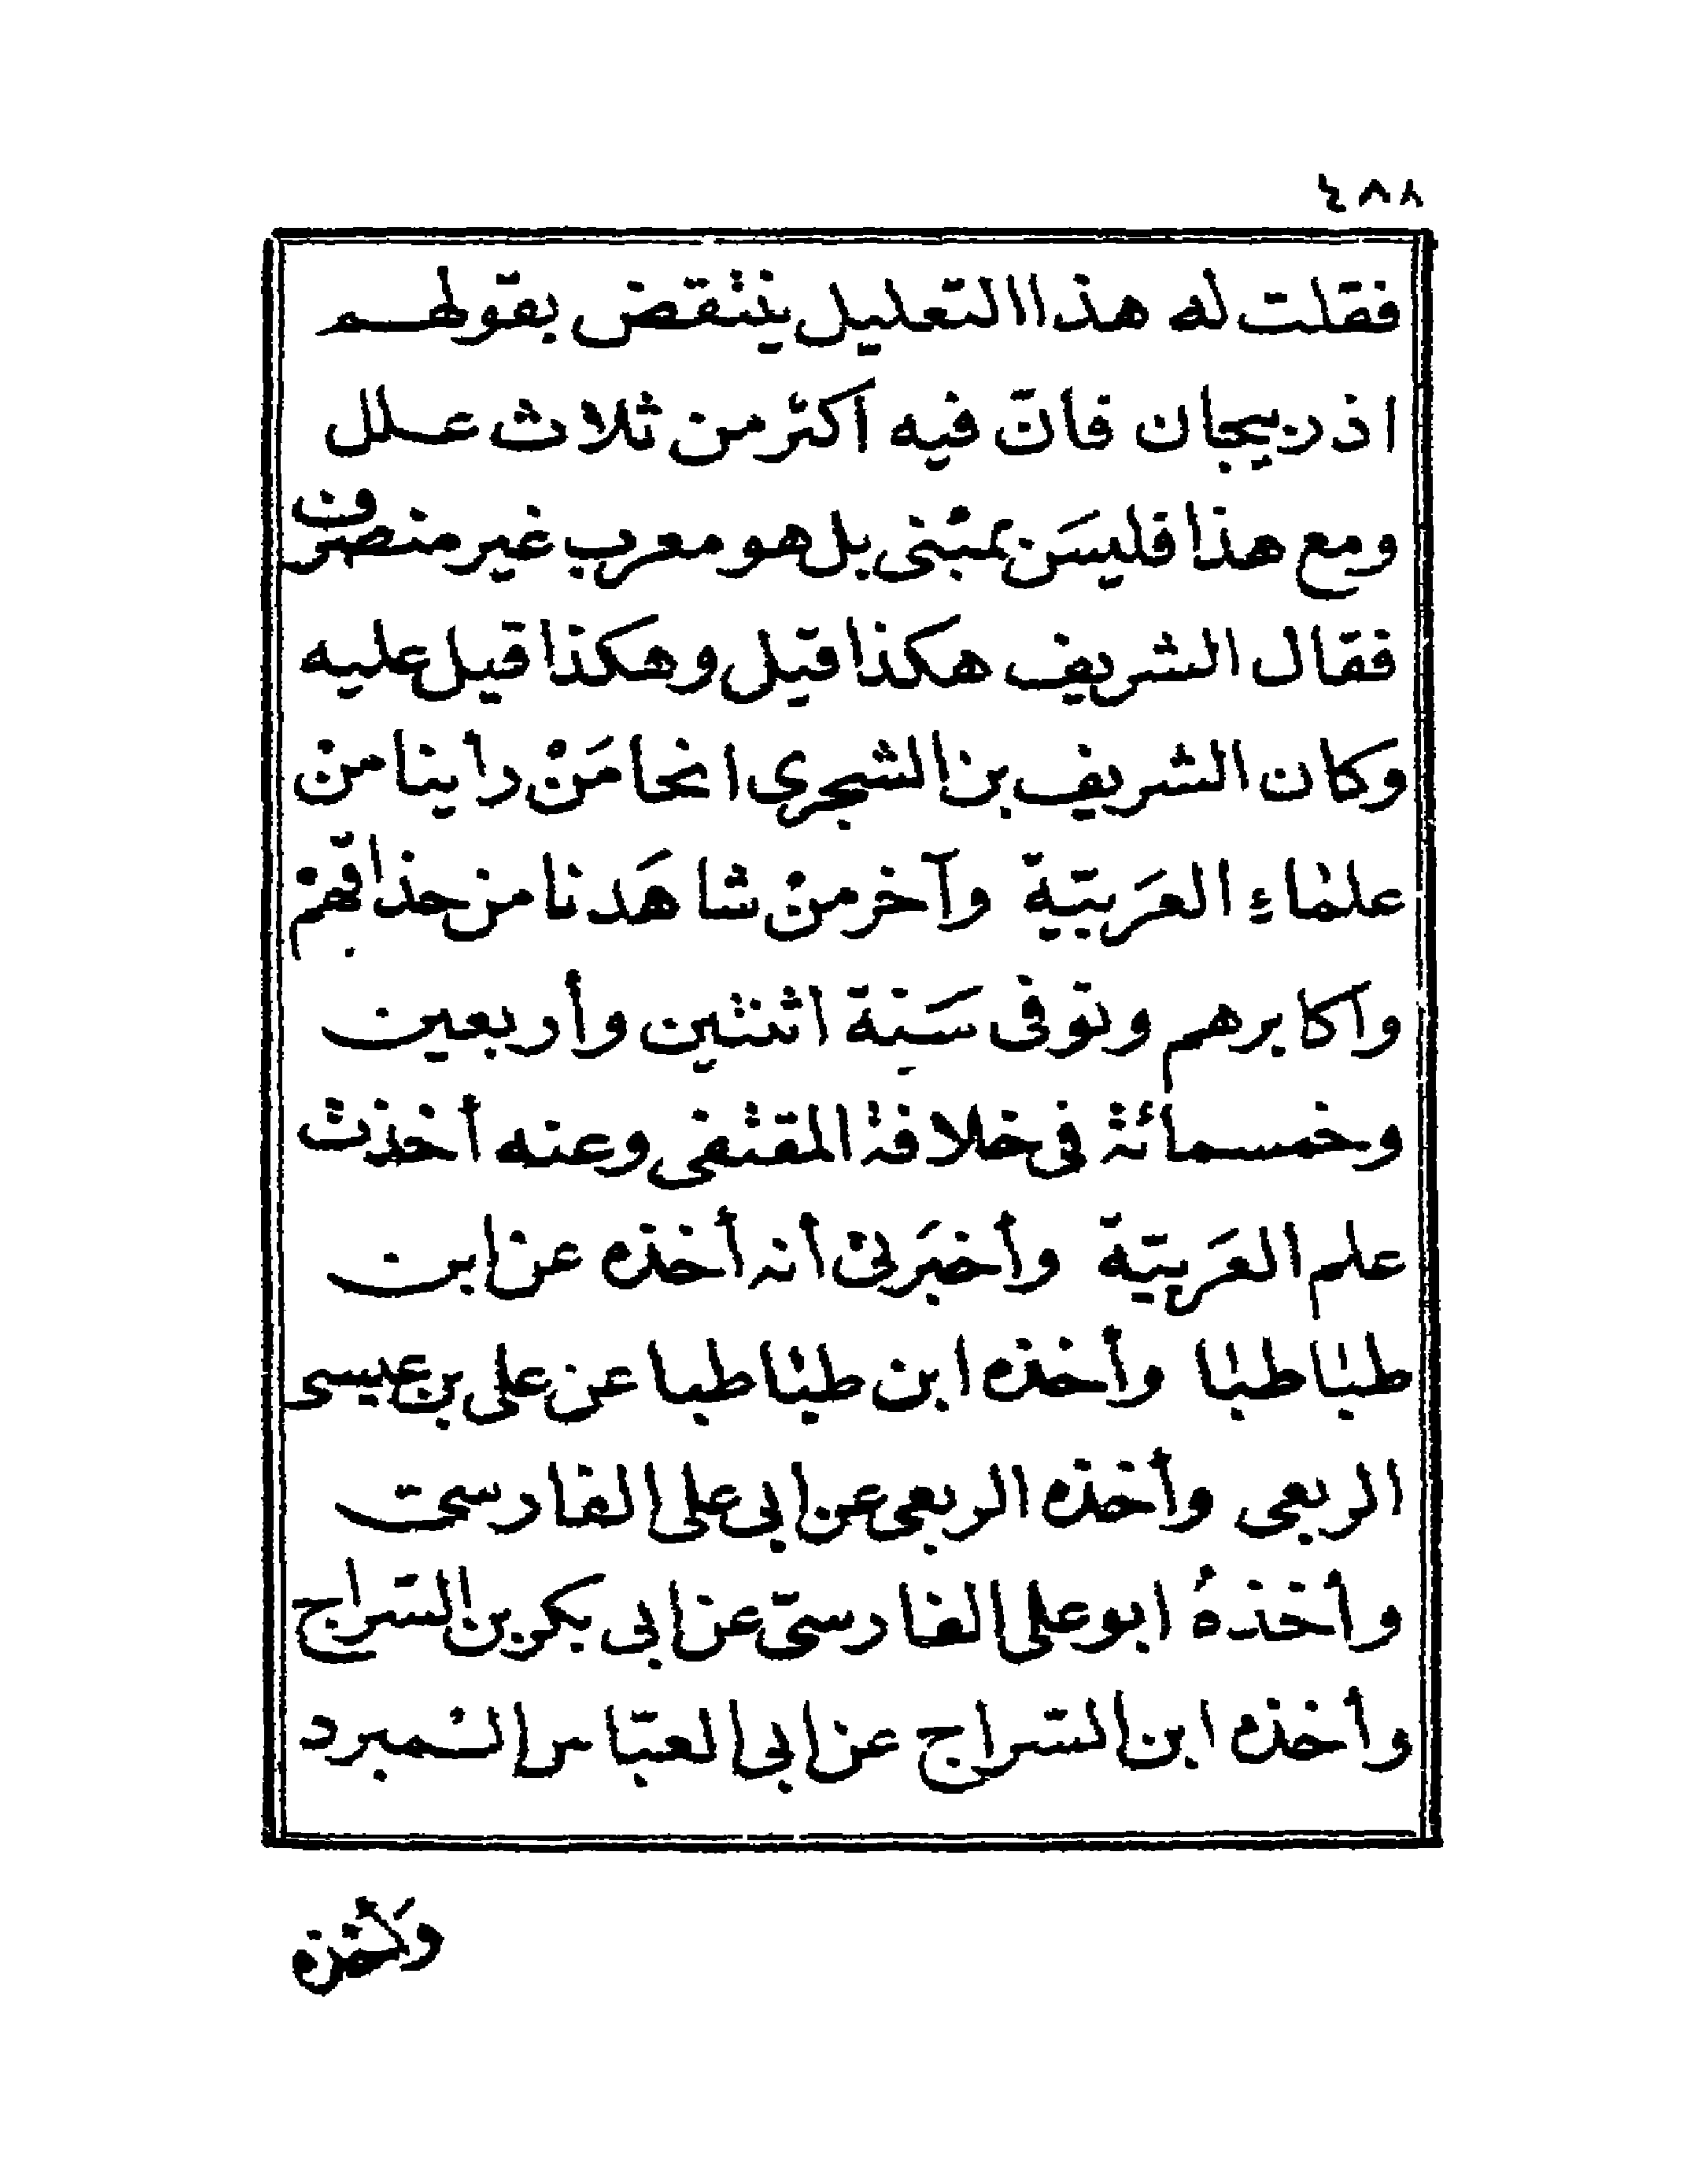 ٤٨٨
فقلت له هذا التعليل ينتقض بقولهم
اذربيجان فانّ فيه اكثر من ثلاث علل
ومع هذا فليسَ بمبنى بل هو معرب غير منصرف
فقال الشريف هكذا قيل وهكذا قيل عليه
وكان الشريف بن الشجرى انحا مَنْ راينا من
علماءِ العَربيّة وآخر منْ شاهَدنا من حذاقهم
واكابرهم وتوفى سَنة اثنتين وأربعين
وخمسمائة فى خلافة المقتفى وعنه أخذت
علم العَربيّة وأخبَرنى أنه أخذه عن ابن
طباطبا وأخذه ابن طباطبا عن على بن عيسى
الربعى وأخذه الربعى عن ابى على الفارسى
وأخذهُ ابو على الفارسىّ عن ابى بكر بن السّراج
وأخذه ابن السّراج عن ابى العبّاس المبرد